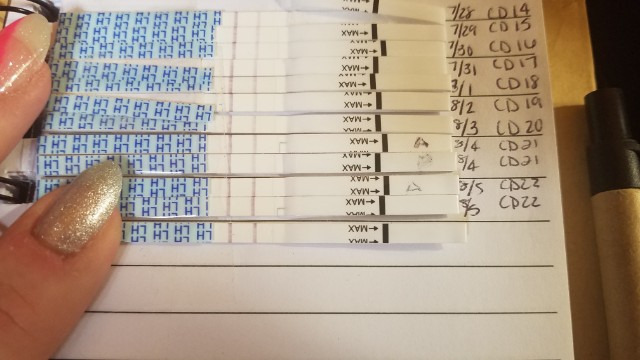 7/28 CD14
7/29 CD15
7/30 CD16
7/31 CD17
8/1 CD18
8/2 CD19
8/3 CD20
8/4 CD21
8/4 CD21
8/5 CD22
8/5 CD22
MAX
MAX
MAX
MAX
MAX
MAX
MAX
MAX
MAX
MAX
MAX
MAX
LH LH LH LH